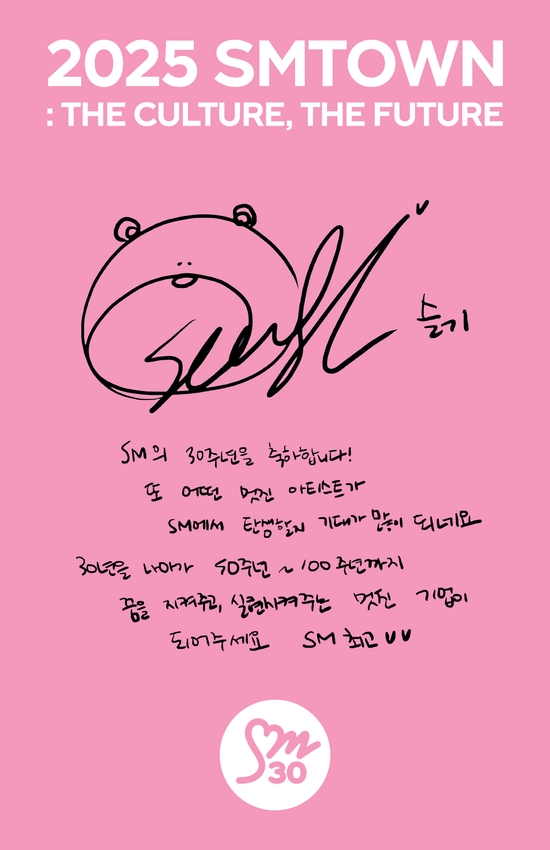 2025 SMTOWN
: THE CULTURE, THE FUTURE
슬기
SM의 30주년을 축하합니다!
또 어떤 멋진 아티스트가
SM에서 탄생할지 기대가 많이 되네요
30년을 나아가 50주년 ~ 100주년까지
꿈을 지켜주고, 실현시켜주는 멋진 기업이
되어주세요 SM 최고
Sm
30